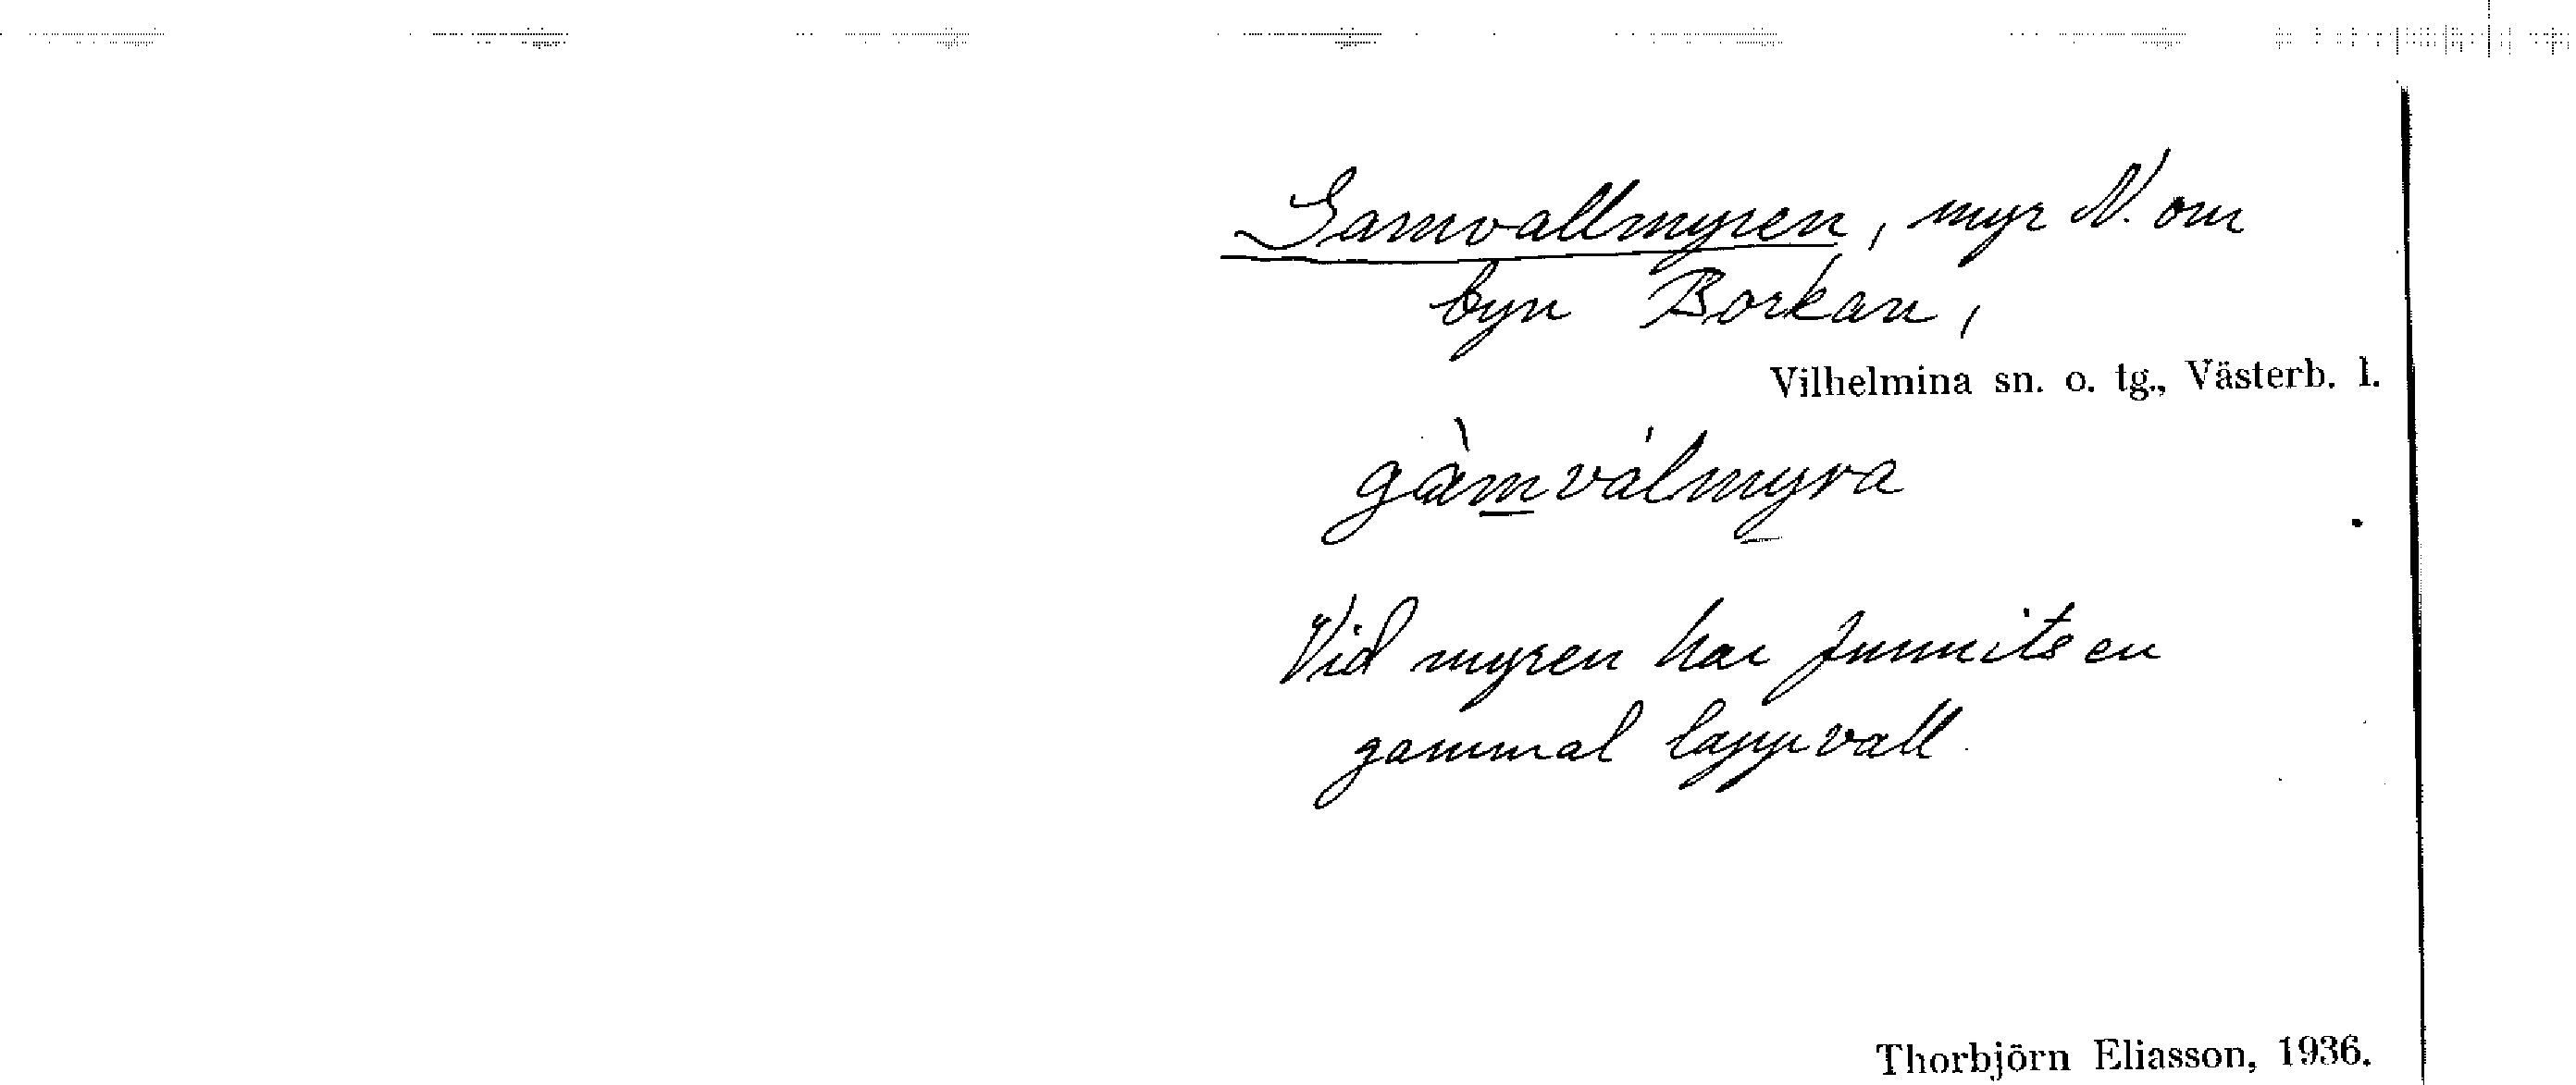 Gamvallmyren, myr N. om
byn Borkan,
Vilhelmina sn. o. tg., Västerb. l.
gàmválmyra
Vid myren har funnits en
gammal lappvall.
Thorbjörn Eliasson, 1936.